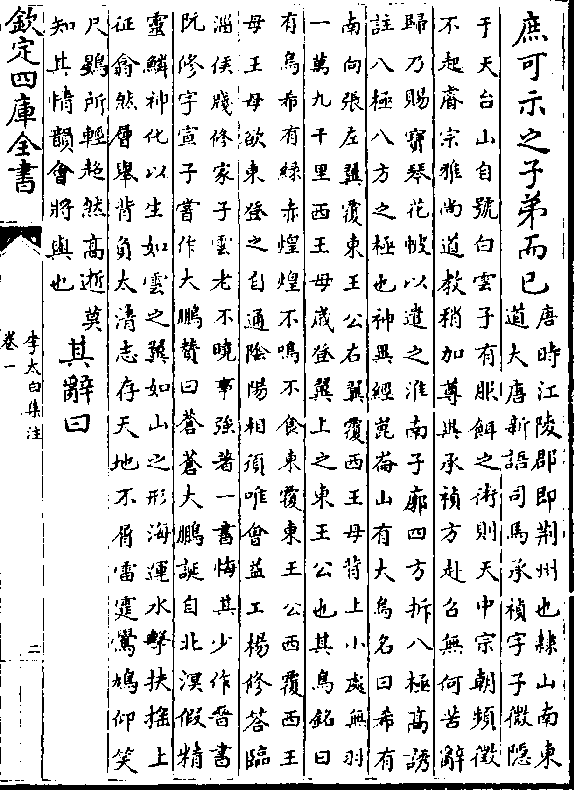 庶可示之子弟而已唐時江陵郡即荆州也隸山南東
道大唐新語司馬承禎字子微隱
于天台山自號白雲子有服餌之術則天中宗朝頻徵
不起睿宗雅尚道教稍加尊異承禎方赴召無何苦辭
歸乃賜寶琴花帔以遣之淮南子廓四方拆八極高誘
註八極八方之極也神異經崑崙山有大鳥名曰希有
南向張左翼覆東王公右翼覆西王母背上小處無羽
一萬九千里西王母歲登翼上之東王公也其鳥銘曰
有鳥希有綠赤煌煌不鳴不食東覆東王公西覆西王
母王母欲東登之自通陰陽相須唯會益工楊修答臨
淄侯牋修家子雲老不曉事強著一書悔其少作晉書
阮修字宣子嘗作大鵬贊曰蒼蒼大鵬誕自北溟假精
靈鱗神化以生如雲之翼如山之形海運水擊扶搖上
征翕然層舉背負太清志存天地不屑雷霆鷽鳩仰笑
尺鷃所輕超然高逝莫
知其情韻會將與也
其辭曰
欽定四庫全書
李太白集注
卷一
二